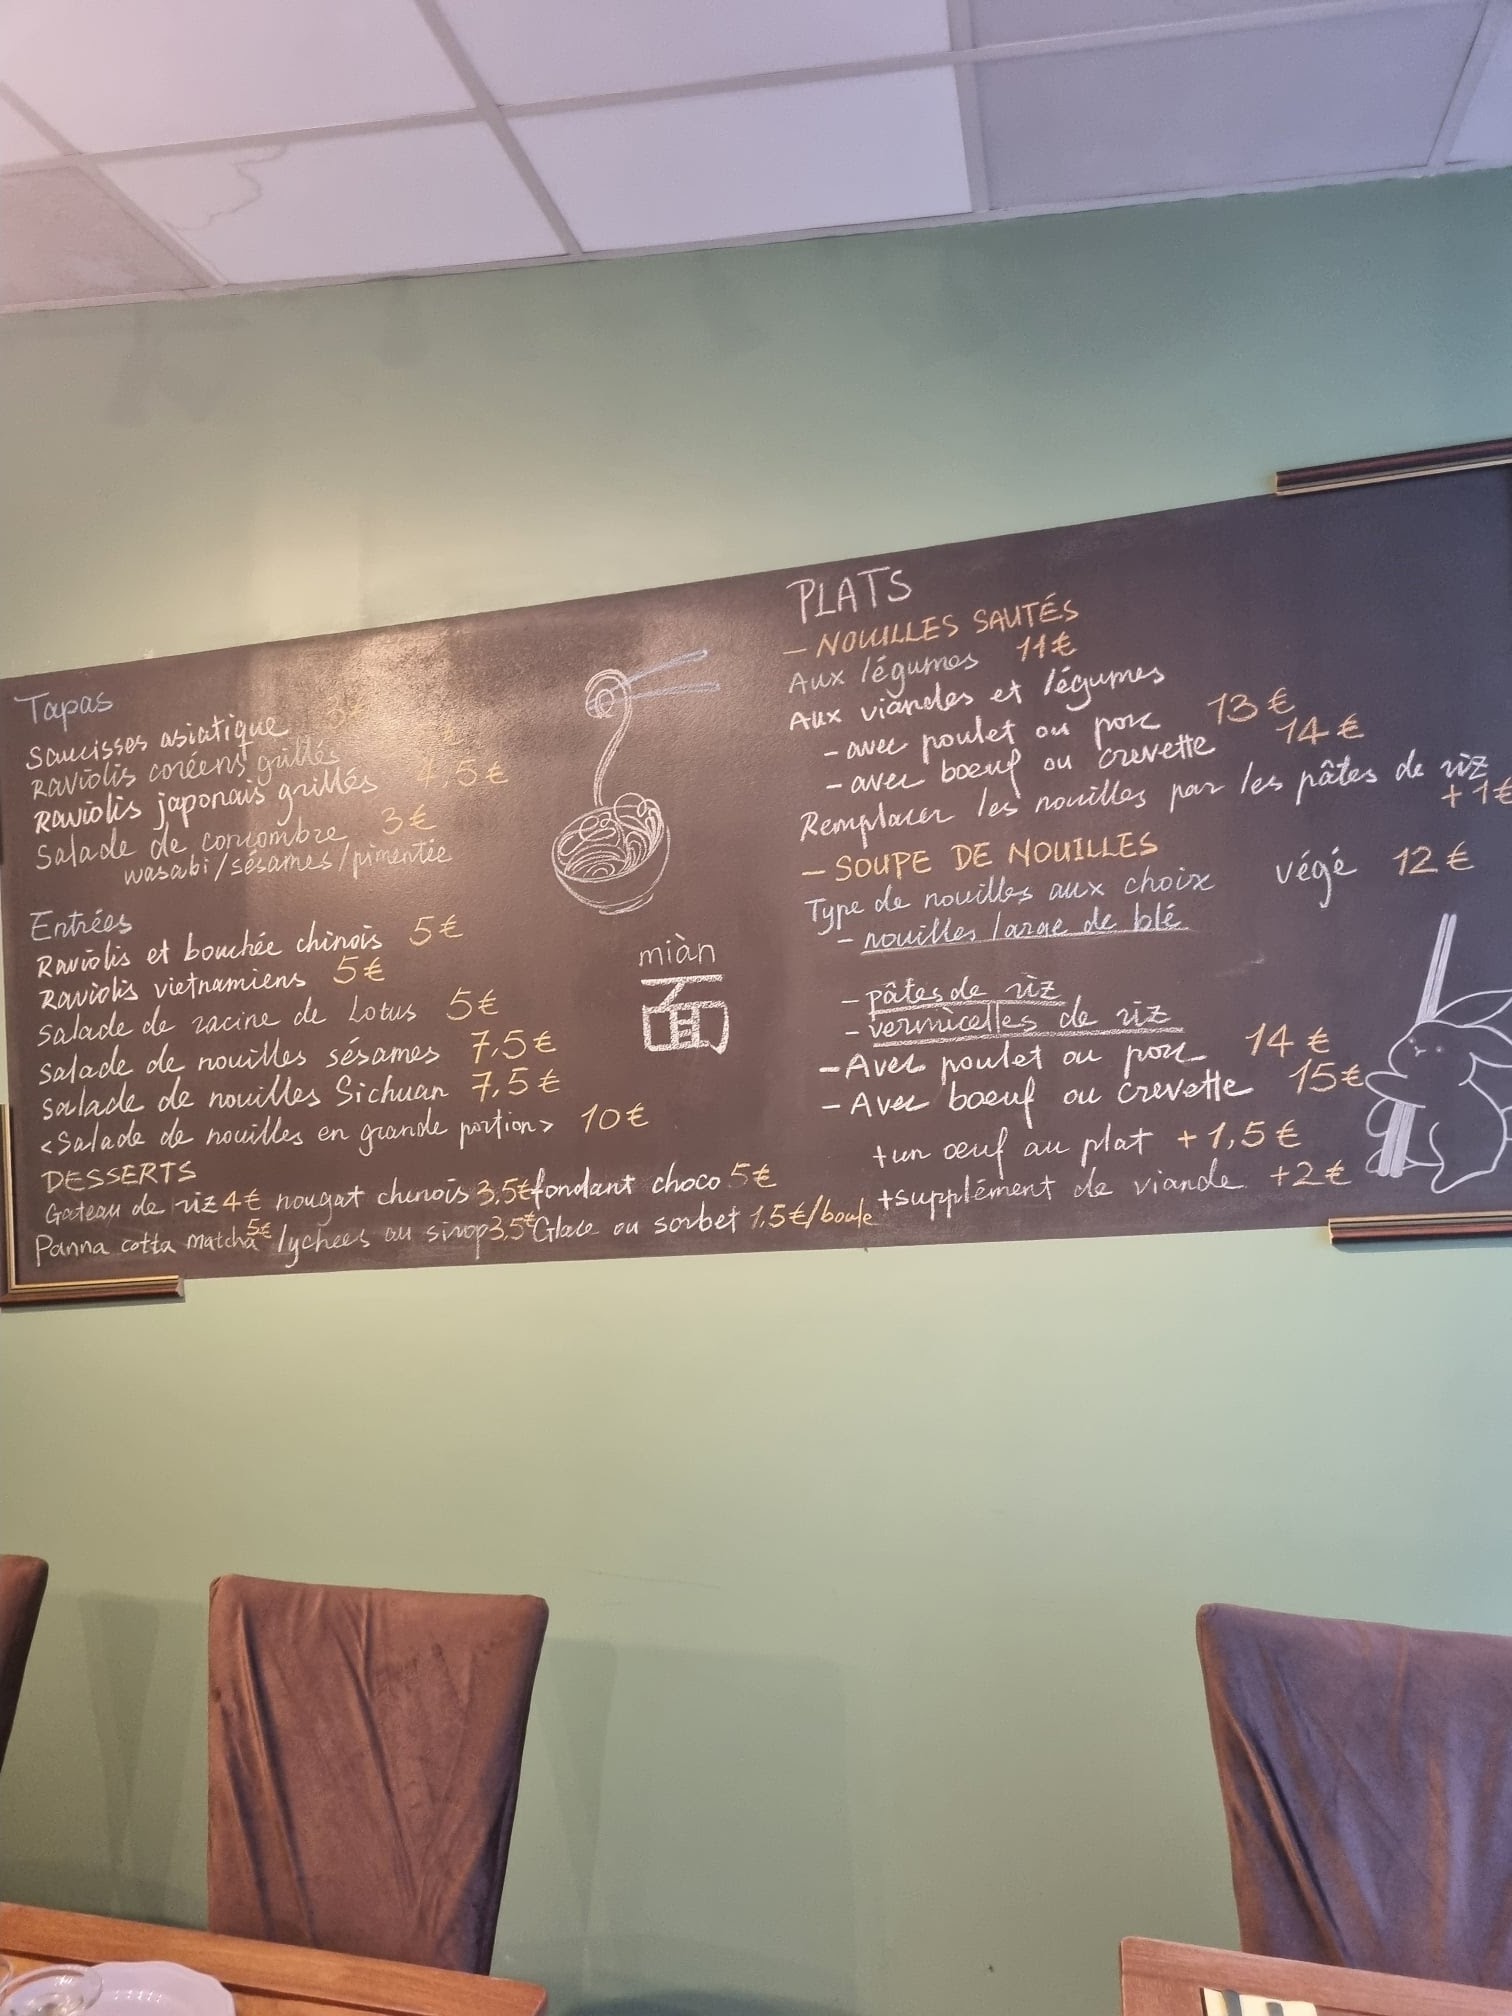 Tapas
Saucisses asiatique 3€
Raviolis coréens grillés
Raviolis japonais grillés 4,5€
Salade de concombre 3€
wasabi/sésames/pimentée
Entrées
Raviolis et bouchée chinois 5€
Raviolis vietnamiens 5€
Salade de racine de Lotus 5€
Salade de nouilles sésames 7,5€
Salade de nouilles Sichuan 7,5€
<Salade de nouilles en grande portion> 10€
DESSERTS
Gateau de riz 4€ nougat chinois 3,5€ fondant choco 5€
Panna cotta matcha 5€ lychees au sirop 3,5€ Glace ou sorbet 1,5€/boule
miàn
面
PLATS
- NOUILLES SAUTÉS
Aux légumes 11€
Aux viandes et légumes
- avec poulet ou porc 13€
- avec bœuf ou crevette 14€
Remplacer les nouilles par les pâtes de riz
+1€
- SOUPE DE NOUILLES
Type de nouilles aux choix végé 12€
- nouilles large de blé
- pâtes de riz
- vermicelles de riz
- Avec poulet ou porc 14€
- Avec bœuf ou crevette 15€
+un œuf au plat +1,5€
+supplément de viande +2€